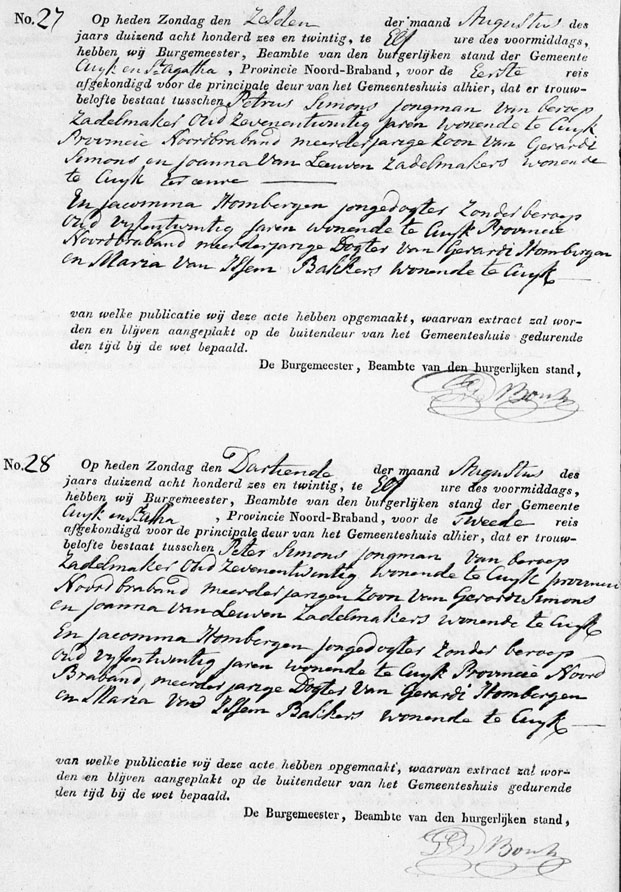 No. 27 Op heden Zondag den Zesden der maand Augustus des
jaars duizend acht honderd zes en twintig, te Elf ure des voormiddags,
hebben wij Burgemeester, Beambte van den burgerlijken stand der Gemeente
Cuyk en St Agatha, Provincie Noord-Braband, voor de Eerste reis
afgekondigd vóor de principale deur van het Gemeenteshuis alhier, dat er trouw-
belofte bestaat tusschen Petrus Simons jongman van beroep
Zadelmaker Oud Zevenentwintig jaren wonende te Cuyk
Provincie Noordbraband meerderjarige Zoon van Gerardi
Simons en joanna van Leuwen Zadelmakers wonende
te Cuyk
En jacomina Hombergen jongedogter Zonder beroep
oud vyfentwintig jaren wonende te Cuyk Provincie
Noordbraband meerderjarige Dogter van Gerardi Hombergen
en Maria van Bakkers wonende te Cuyk
van welke publicatie wij deze acte hebben opgemaakt, waarvan extract zal wor-
den en blijven aangeplakt op de buitendeur van het Gemeenteshuis gedurende
den tijd bij de wet bepaald.
De Burgemeester, Beambte van den burgerlijken stand,
No. 28 Op heden Zondag den Dartiende der maand Augustus des
jaars duizend acht honderd zes en twintig, te Elf ure des voormiddags,
hebben wij Burgemeester, Beambte van den burgerlijken stand der Gemeente
Cuyk en St , Provincie Noord-Braband, voor de Tweede reis
afgekondigd vóor de principale deur van het Gemeenteshuis alhier, dat er trouw-
belofte bestaat tusschen Peter Simons jongman van beroep
Zadelmaker Oud Zevenentwintig wonende te Cuyk provincie
Noordbraband meerderjarigen Zoon van Gerardi Simons
en joanna van Leuwen Zadelmakers wonende te Cuyk
En jacomina Hombergen jongedogter Zonder beroep
oud vyfentwintig jaren wonende te Cuyk Provincie Noord
Braband, meerderjarige Dogter van Gerardi Hombergen
en Maria van Bakkers wonende te Cuyk
van welke publicatie wij deze acte hebben opgemaakt, waarvan extract zal wor-
den en blijven aangeplakt op de buitendeur van het Gemeenteshuis gedurende
den tijd bij de wet bepaald.
De Burgemeester, Beambte van den burgerlijken stand,